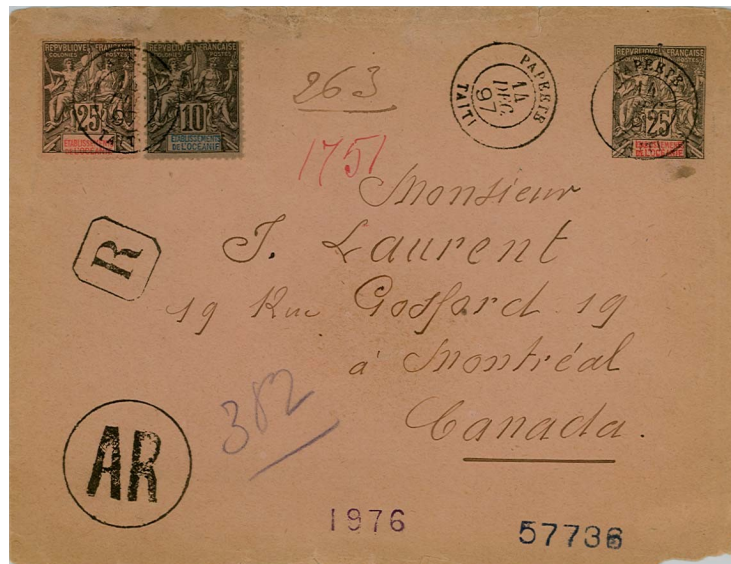 REPVBLIQVE FRANÇAISE
COLONIES POSTES
25
ETABLISSEMENTS
DE L'OCEANIE
REPVBLIQVE FRANÇAISE
COLONIES POSTES
10
ETABLISSEMENTS
DE L'OCEANIE
263
PAPEETE
14
DEC.
97
TAITI
REPVBLIQVE FRANÇAISE
PAPEETE
14
25
DE L'OCEANIE
1751
Monsieur
J. Laurent
R
19 Rue Gosford 19
à Montréal
382
Canada.
AR
1976
57736